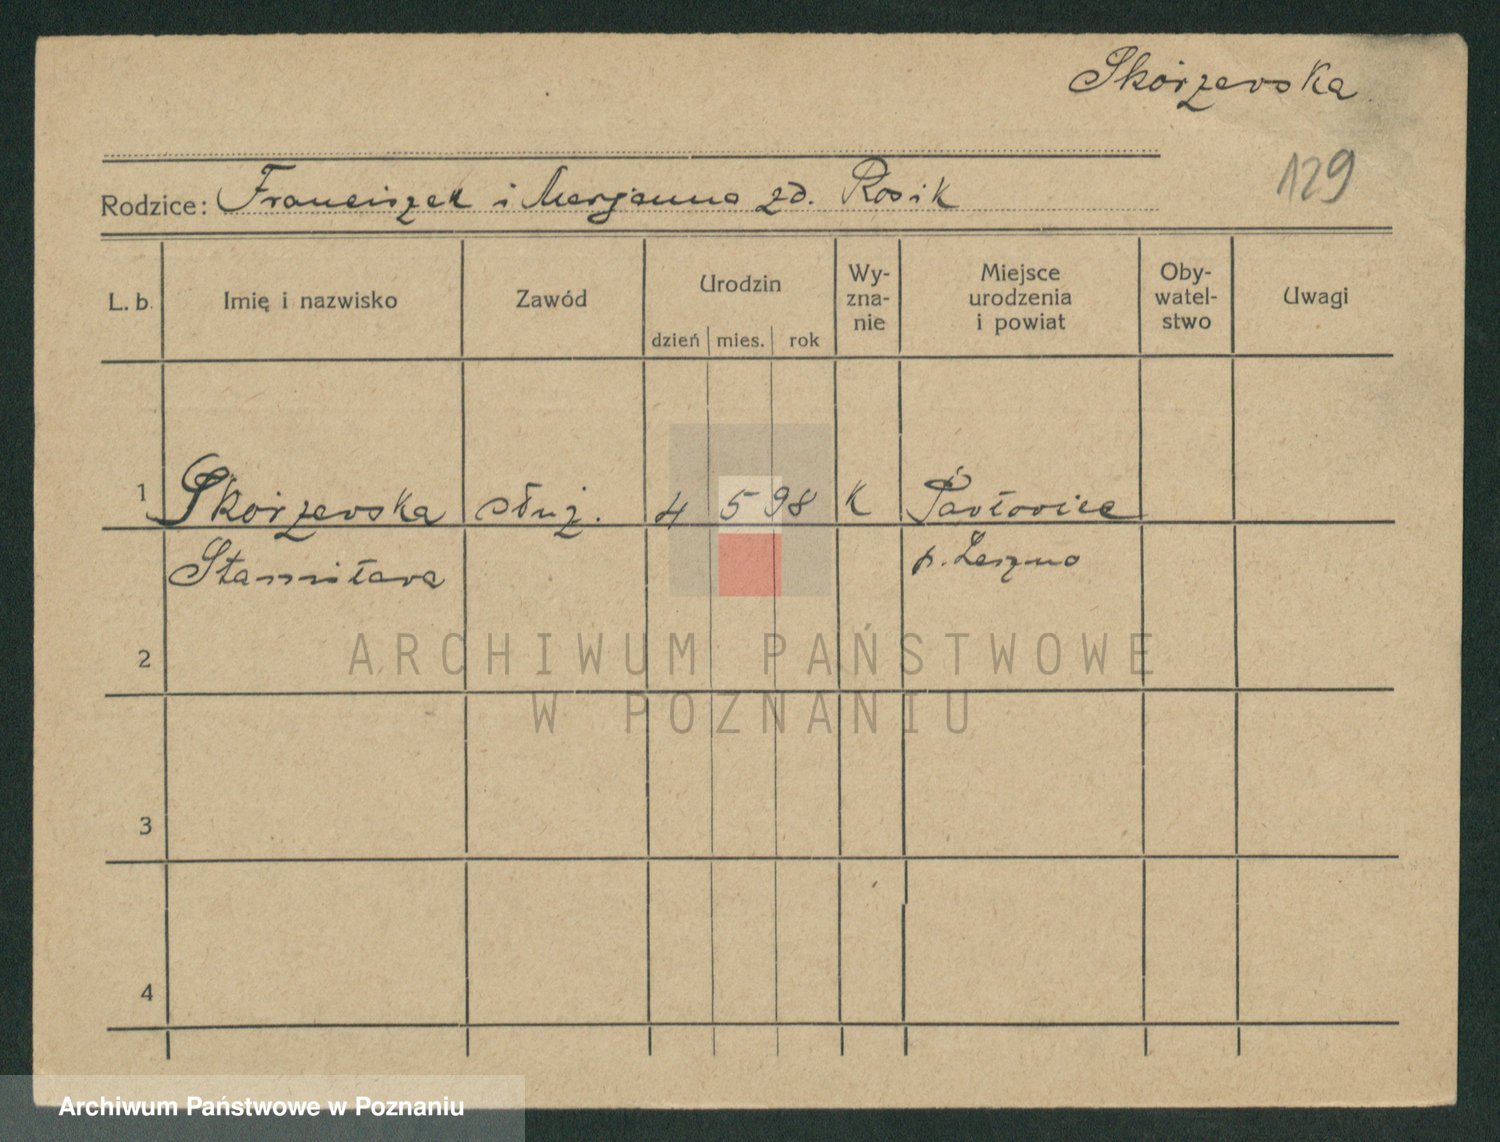 Skórzewska
129
Rodzice: Franciszek i Marjanna zd. Rosik
L. b. Imię i nazwisko Zawód Urodzin dzień mies. rok Wyznanie Miejsce urodzenia i powiat Obywatelstwo Uwagi
1 Skórzewska służ. 4 5 98 K Pawłowice
Stanisława p. Leszno
2
3
4
ARCHIWUM PAŃSTWOWE
W POZNANIU
Archiwum Państwowe w Poznaniu